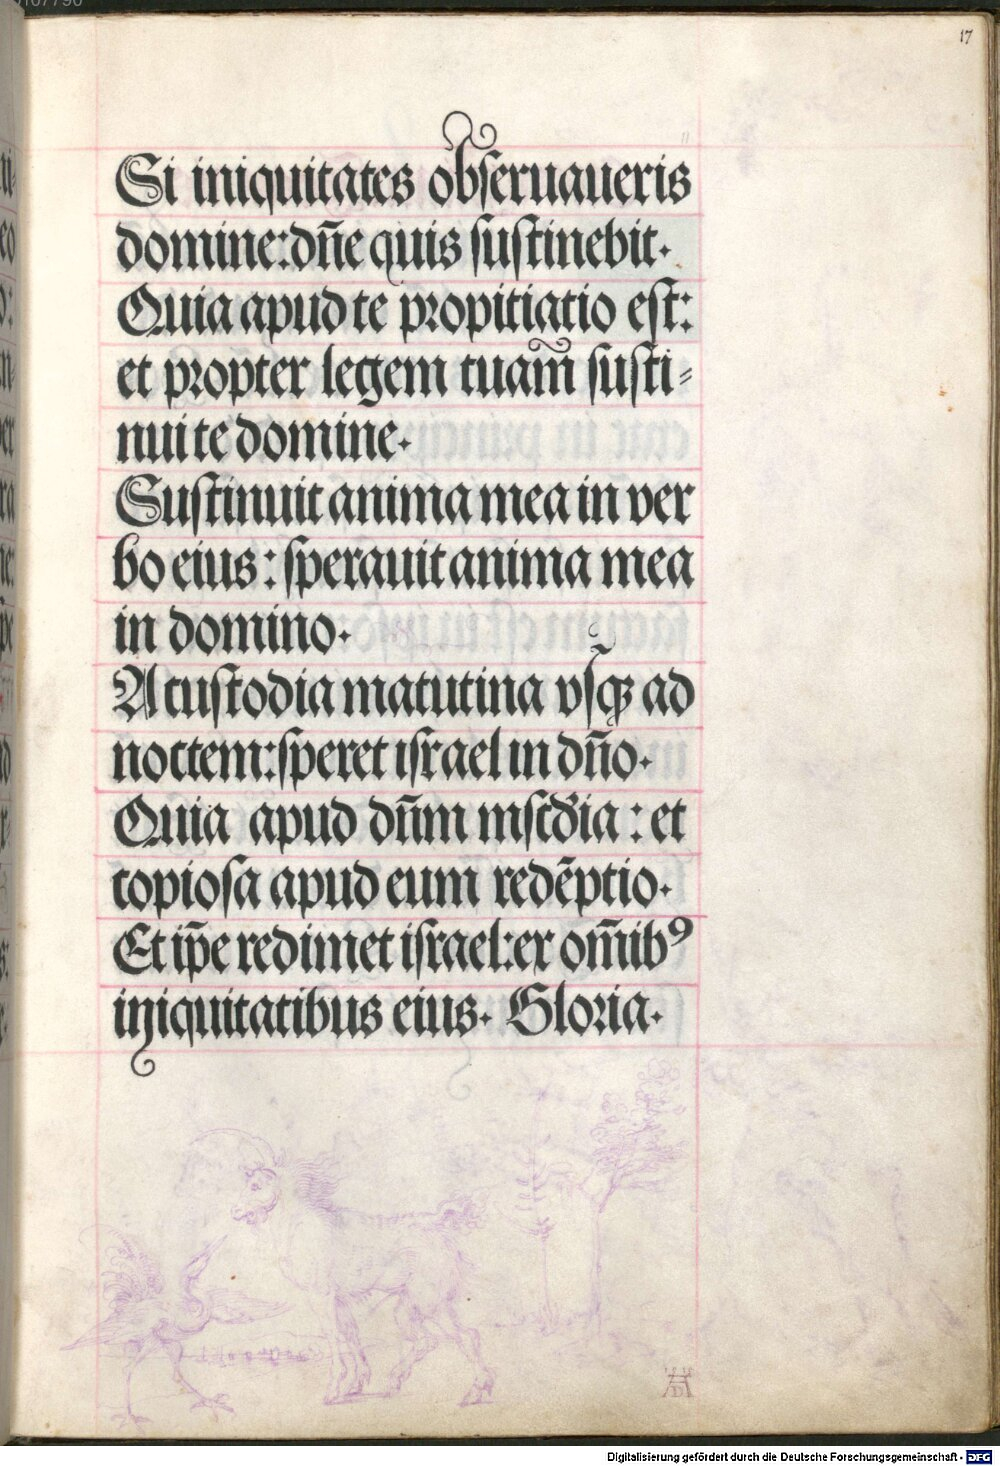 17
Si iniquitates obſeruaueris
domine:dn̄e quis ſuſtinebit.
Quia apud te propitiatio eſt:
et propter legem tuam̄ ſuſti⸗
nui te domine.
Suſtinuit anima mea in ver
bo eius: ſperauit anima mea
in domino.
A cuſtodia matutina vſqꝫ ad
noctem:ſperet iſrael in dn̄o.
Quia apud dn̄m mſc̄dia: et
copioſa apud eum redēptio.
Et ip̄e redimet iſrael:ex om̄ibꝰ
iniquitatibus eius. Gloria.
AD
Digitalisierung gefördert durch die Deutsche Forschungsgemeinschaft - DFG